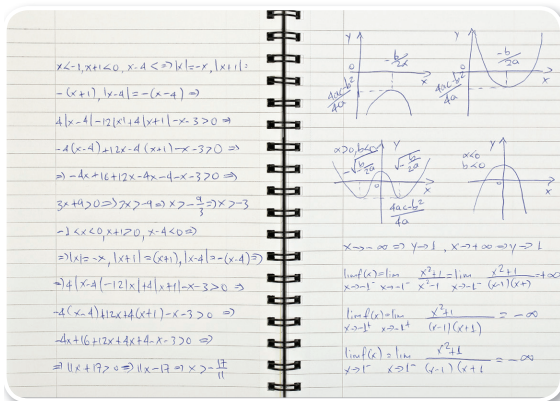 x<-1, x+1<0, x-4< ⇒ |x|=-x, |x+1|=
-(x+1), |x-4|=-(x-4) ⇒
4|x-4|-12|x|+4|x+1|-x-3>0 ⇒
-4(x-4)+12x-4(x+1)-x-3>0 ⇒
⇒ -4x+16+12x-4x-4-x-3>0 ⇒
3x+9>0 ⇒ 3x>-9 ⇒ x>-9/3 ⇒ x>-3
-1<x<0, x+1>0, x-4<0 ⇒
⇒ |x|=-x, |x+1|=(x+1), |x-4|=-(x-4) ⇒
⇒ 4|x-4|-12|x|+4|x+1|-x-3>0 ⇒
-4(x-4)+12x+4(x+1)-x-3>0 ⇒
-4x+16+12x+4x+4-x-3>0 ⇒
⇒ 11x+17>0 ⇒ 11x-17 ⇒ x>-17/11
y
-b/2a
0
x
4ac-b²/4a
y
-b/2a
0
x
4ac-b²/4a
a>0, b<0
y
-√-b/2a
√-b/2a
0
x
4ac-b²/4a
a<0
b<0
y
0
x
x→-∞ ⇒ y→1, x→+∞ ⇒ y→1
limf(x)=lim x²+1/x²-1 = lim x²+1/(x-1)(x+) = +∞
x→-1⁻ x→-1⁻ x→-1⁻
limf(x)=lim x²+1/(x-1)(x+1) = -∞
x→-1⁺ x→-1⁺
limf(x)=lim x²+1/(x-1)(x+1 = -∞
x→1⁻ x→1⁻